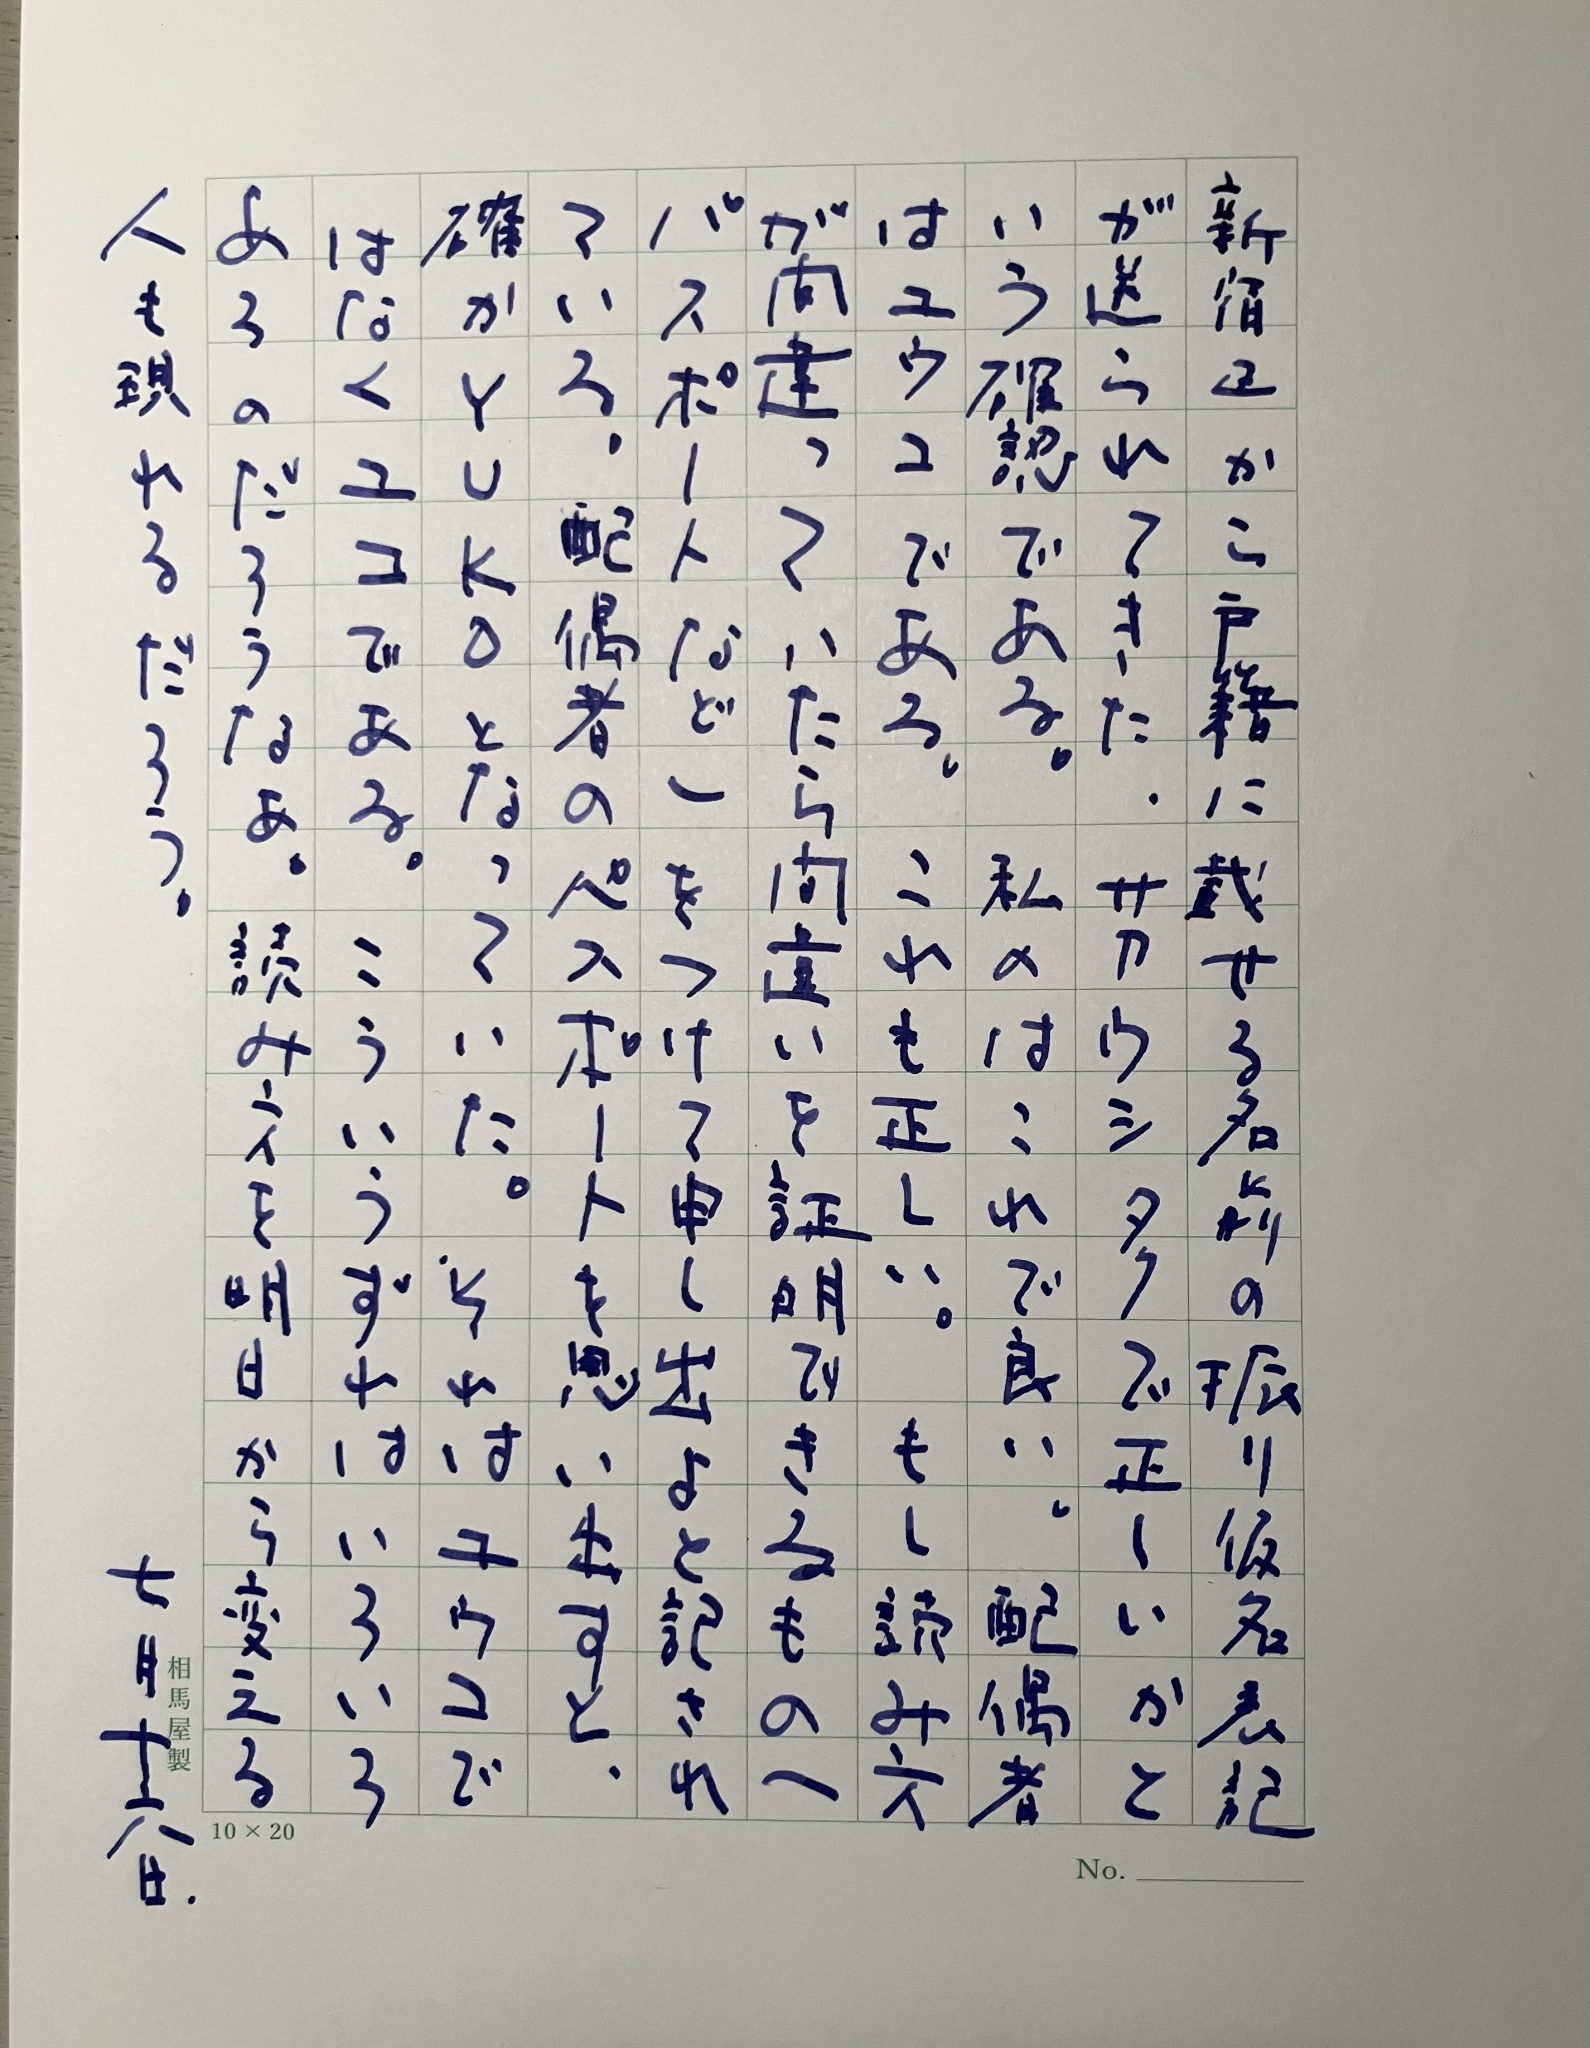 新宿区から戸籍に載せる名前の振り仮名表記
が送られてきた．サカウシタクで正しいかと
いう確認である。私のはこれで良い。配偶者
はユウコである。これも正しい。もし読み方
が間違っていたら間違いを証明できるもの一
パスポートなど一をつけて申し出よと記され
ている。配偶者のパスポートを思い出すと、
確かYUKOとなっていた。それはユウコで
はなくユコである。こういうずれはいろいろ
あるのだろうなあ。読み方を明日から変える
人も現れるだろう。
七月十八日.
相馬屋製
10×20
No.